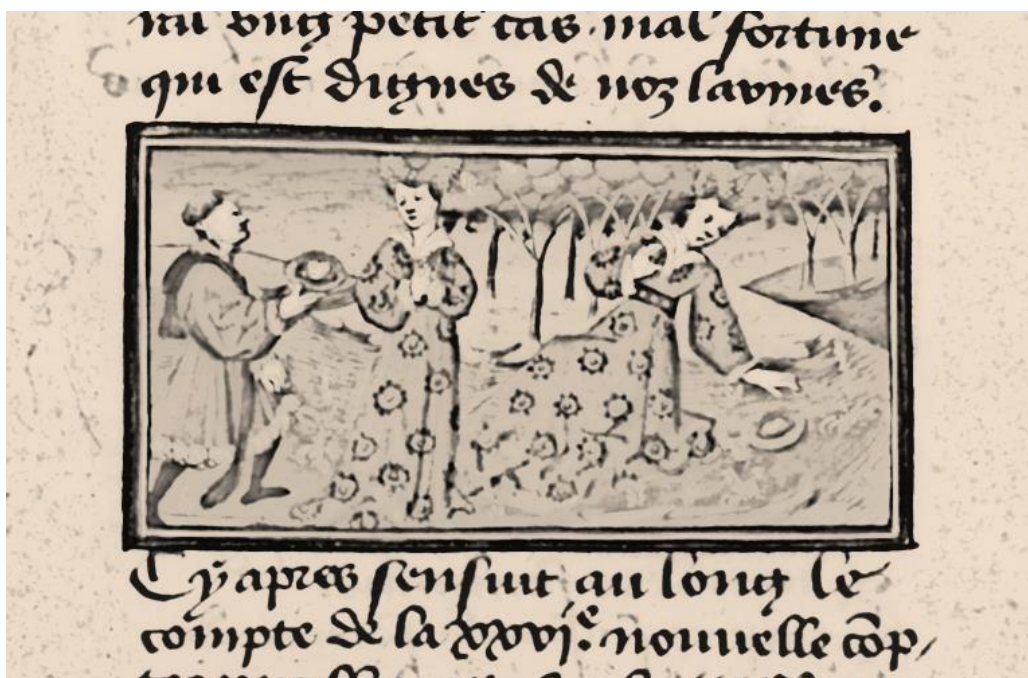 vng petit cas mal fortune
qui est dignes de noz larmes.
Cy apres sensuit au long le
compte de la xxviᵉ. nouuelle cōp/